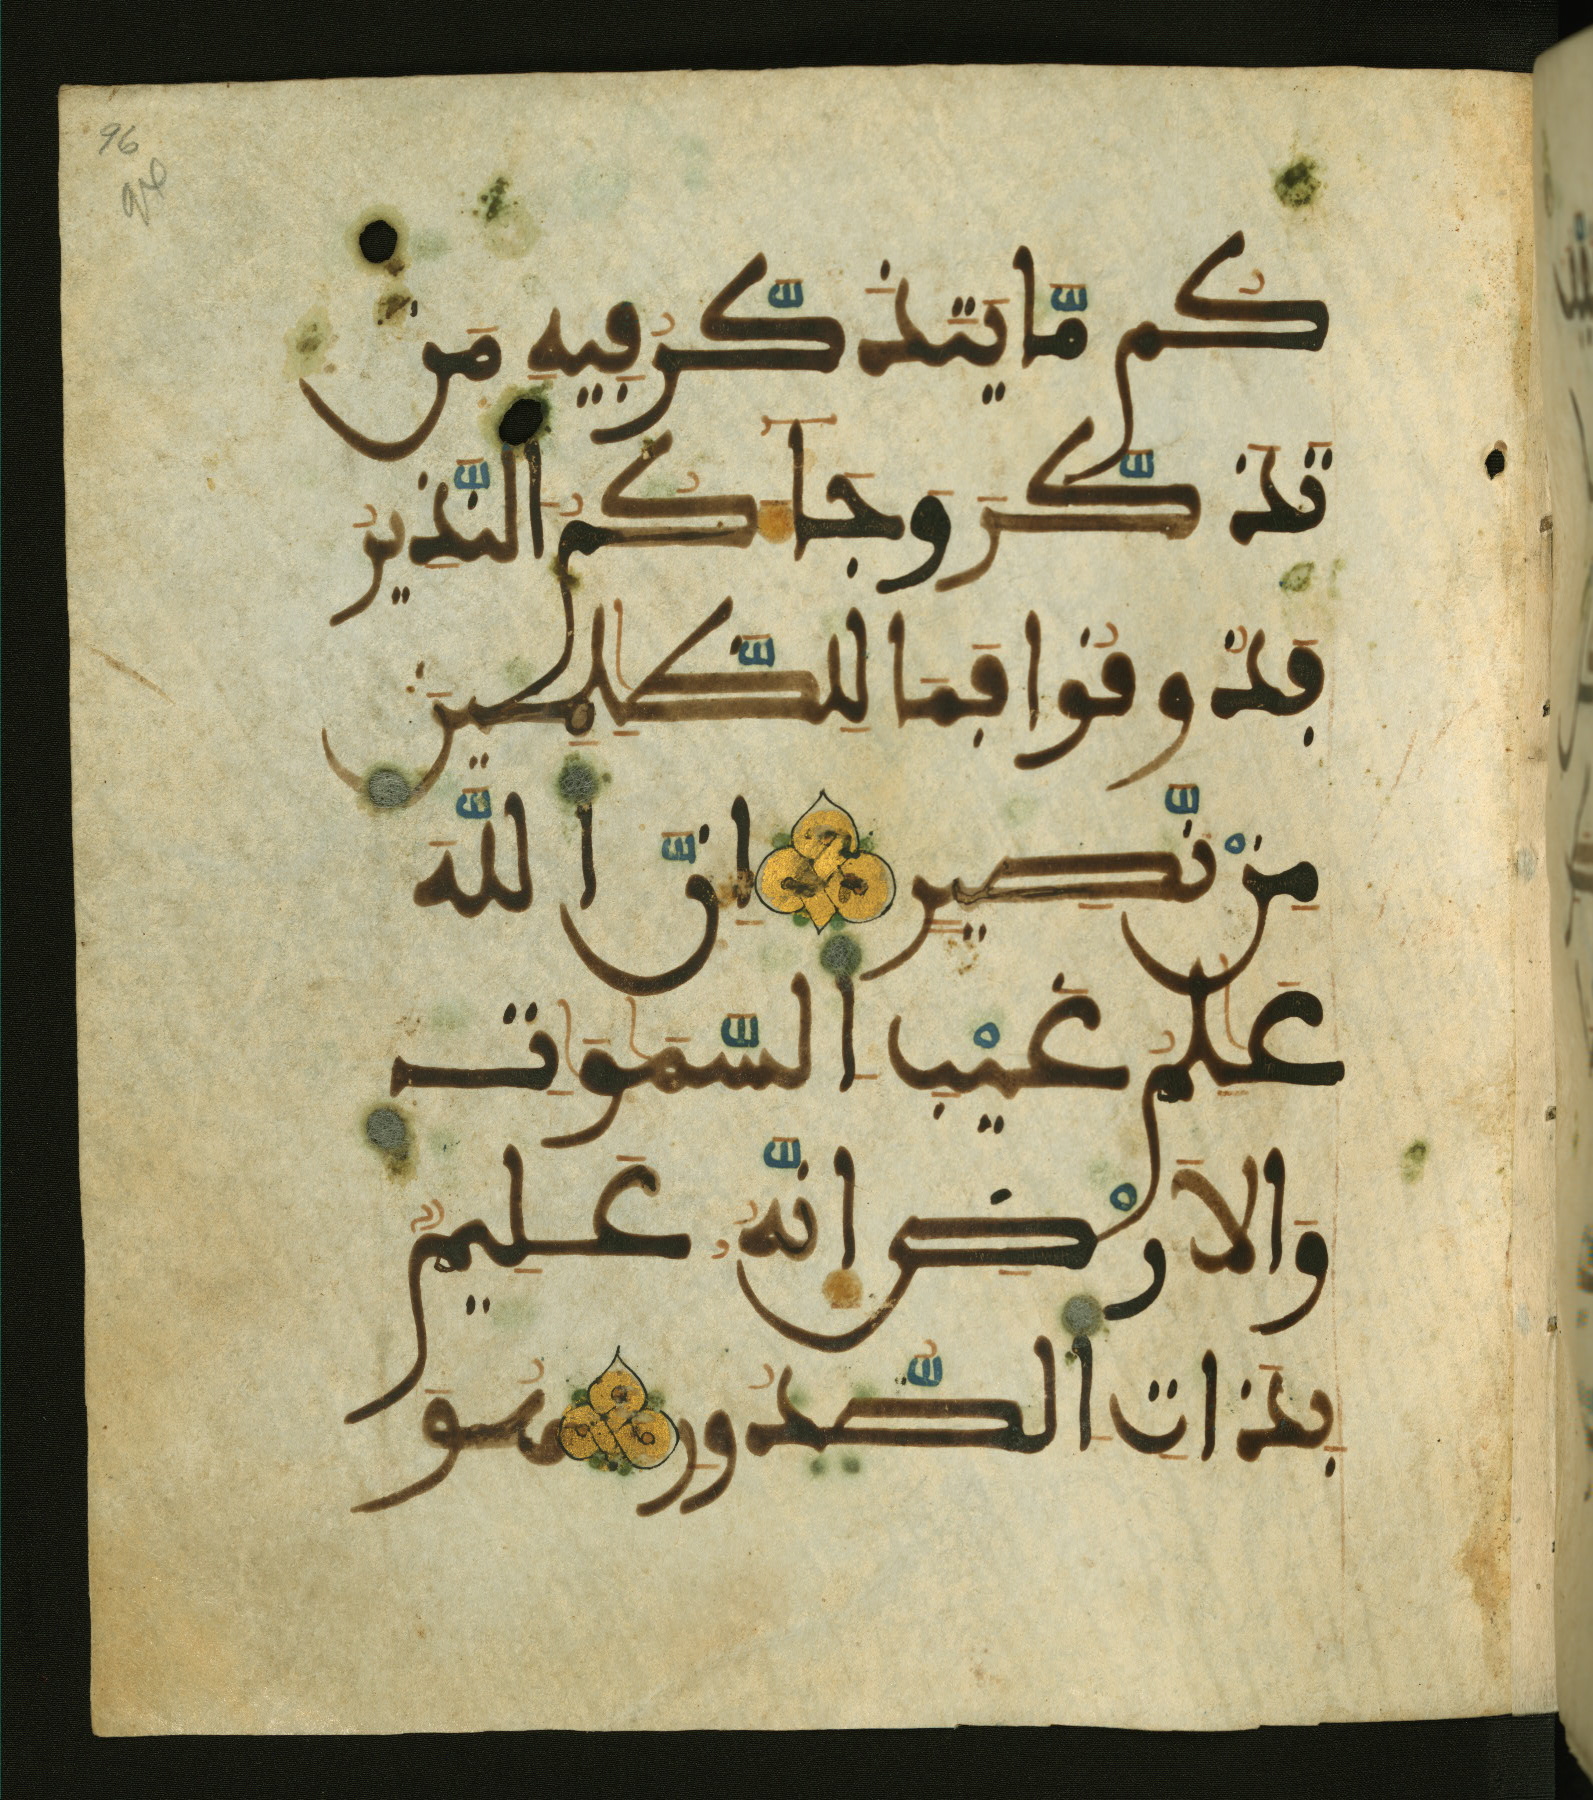 96
كُم مَّا يَتَذَكَّرُ فِيهِ مَن
تَذَكَّرَ وَجَاكُمُ النَّذِيرُ
فَذُوقُوا فَمَا لِلظَّلِمِينَ
مِنْ نَّصِيرٍ إِنَّ اللَّهَ
عَلِمُ غَيْبِ السَّمَوَتِ
وَالَارْضِ إِنَّهُ عَلِيمٌ
بِذَاتِ الصُّدُورِ هُوَ